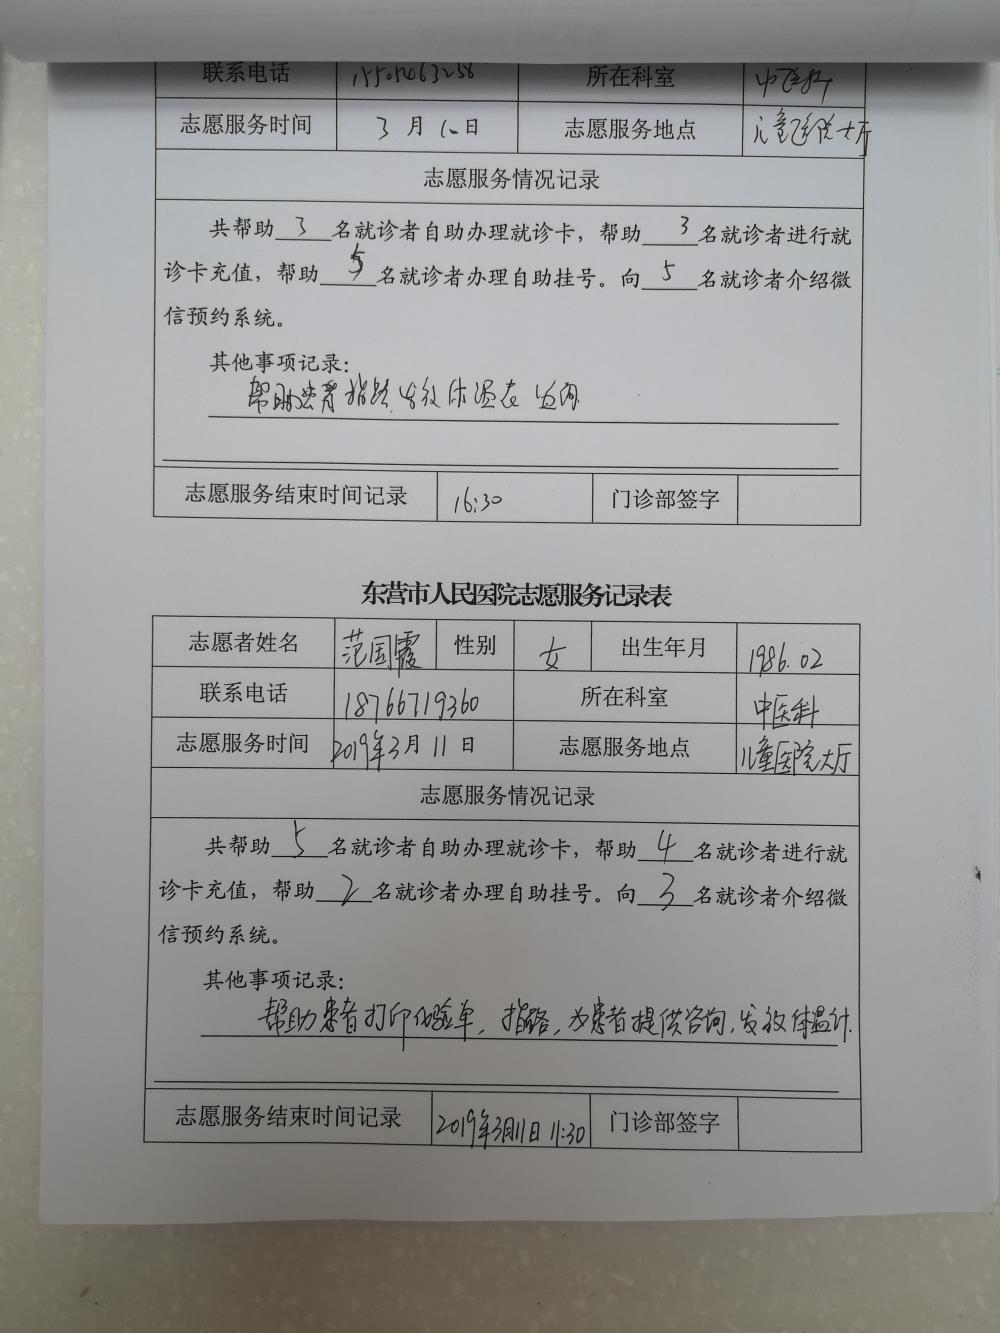 联系电话 所在科室 中医科
志愿服务时间 3月12日 志愿服务地点 儿童医院大厅
志愿服务情况记录
共帮助3名就诊者自助办理就诊卡，帮助3名就诊者进行就
诊卡充值，帮助5名就诊者办理自助挂号。向5名就诊者介绍微
信预约系统。
其他事项记录：
帮助患者指路、发放体温表
志愿服务结束时间记录 16:30 门诊部签字
东营市人民医院志愿服务记录表
志愿者姓名 范国霞 性别 女 出生年月 1986.02
联系电话 18766719360 所在科室 中医科
志愿服务时间 2019年3月11日 志愿服务地点 儿童医院大厅
志愿服务情况记录
共帮助5名就诊者自助办理就诊卡，帮助4名就诊者进行就
诊卡充值，帮助2名就诊者办理自助挂号。向3名就诊者介绍微
信预约系统。
其他事项记录：
帮助患者打印化验单，指路，为患者提供咨询，发放体温计.
志愿服务结束时间记录 2019年3月11日 11:30 门诊部签字